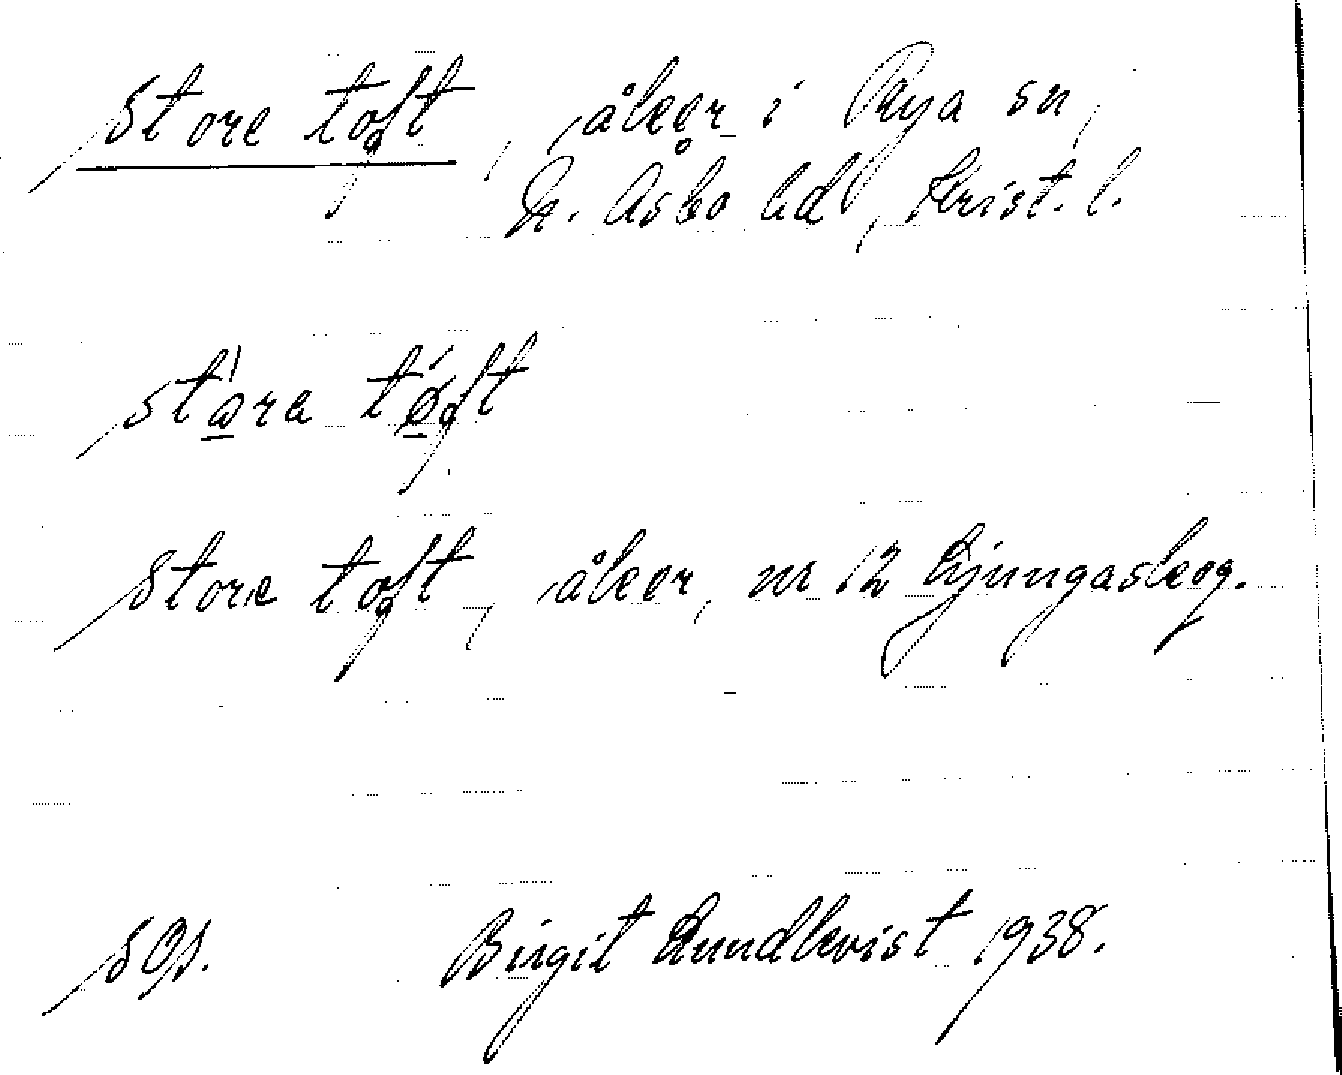 Store toft, åker i Rya sn,
N. Åsbo hd, Krist. l.
stora tøft
Store toft, åker, nr 12 Ljungaskog.
Birgit Lundkvist 1938.